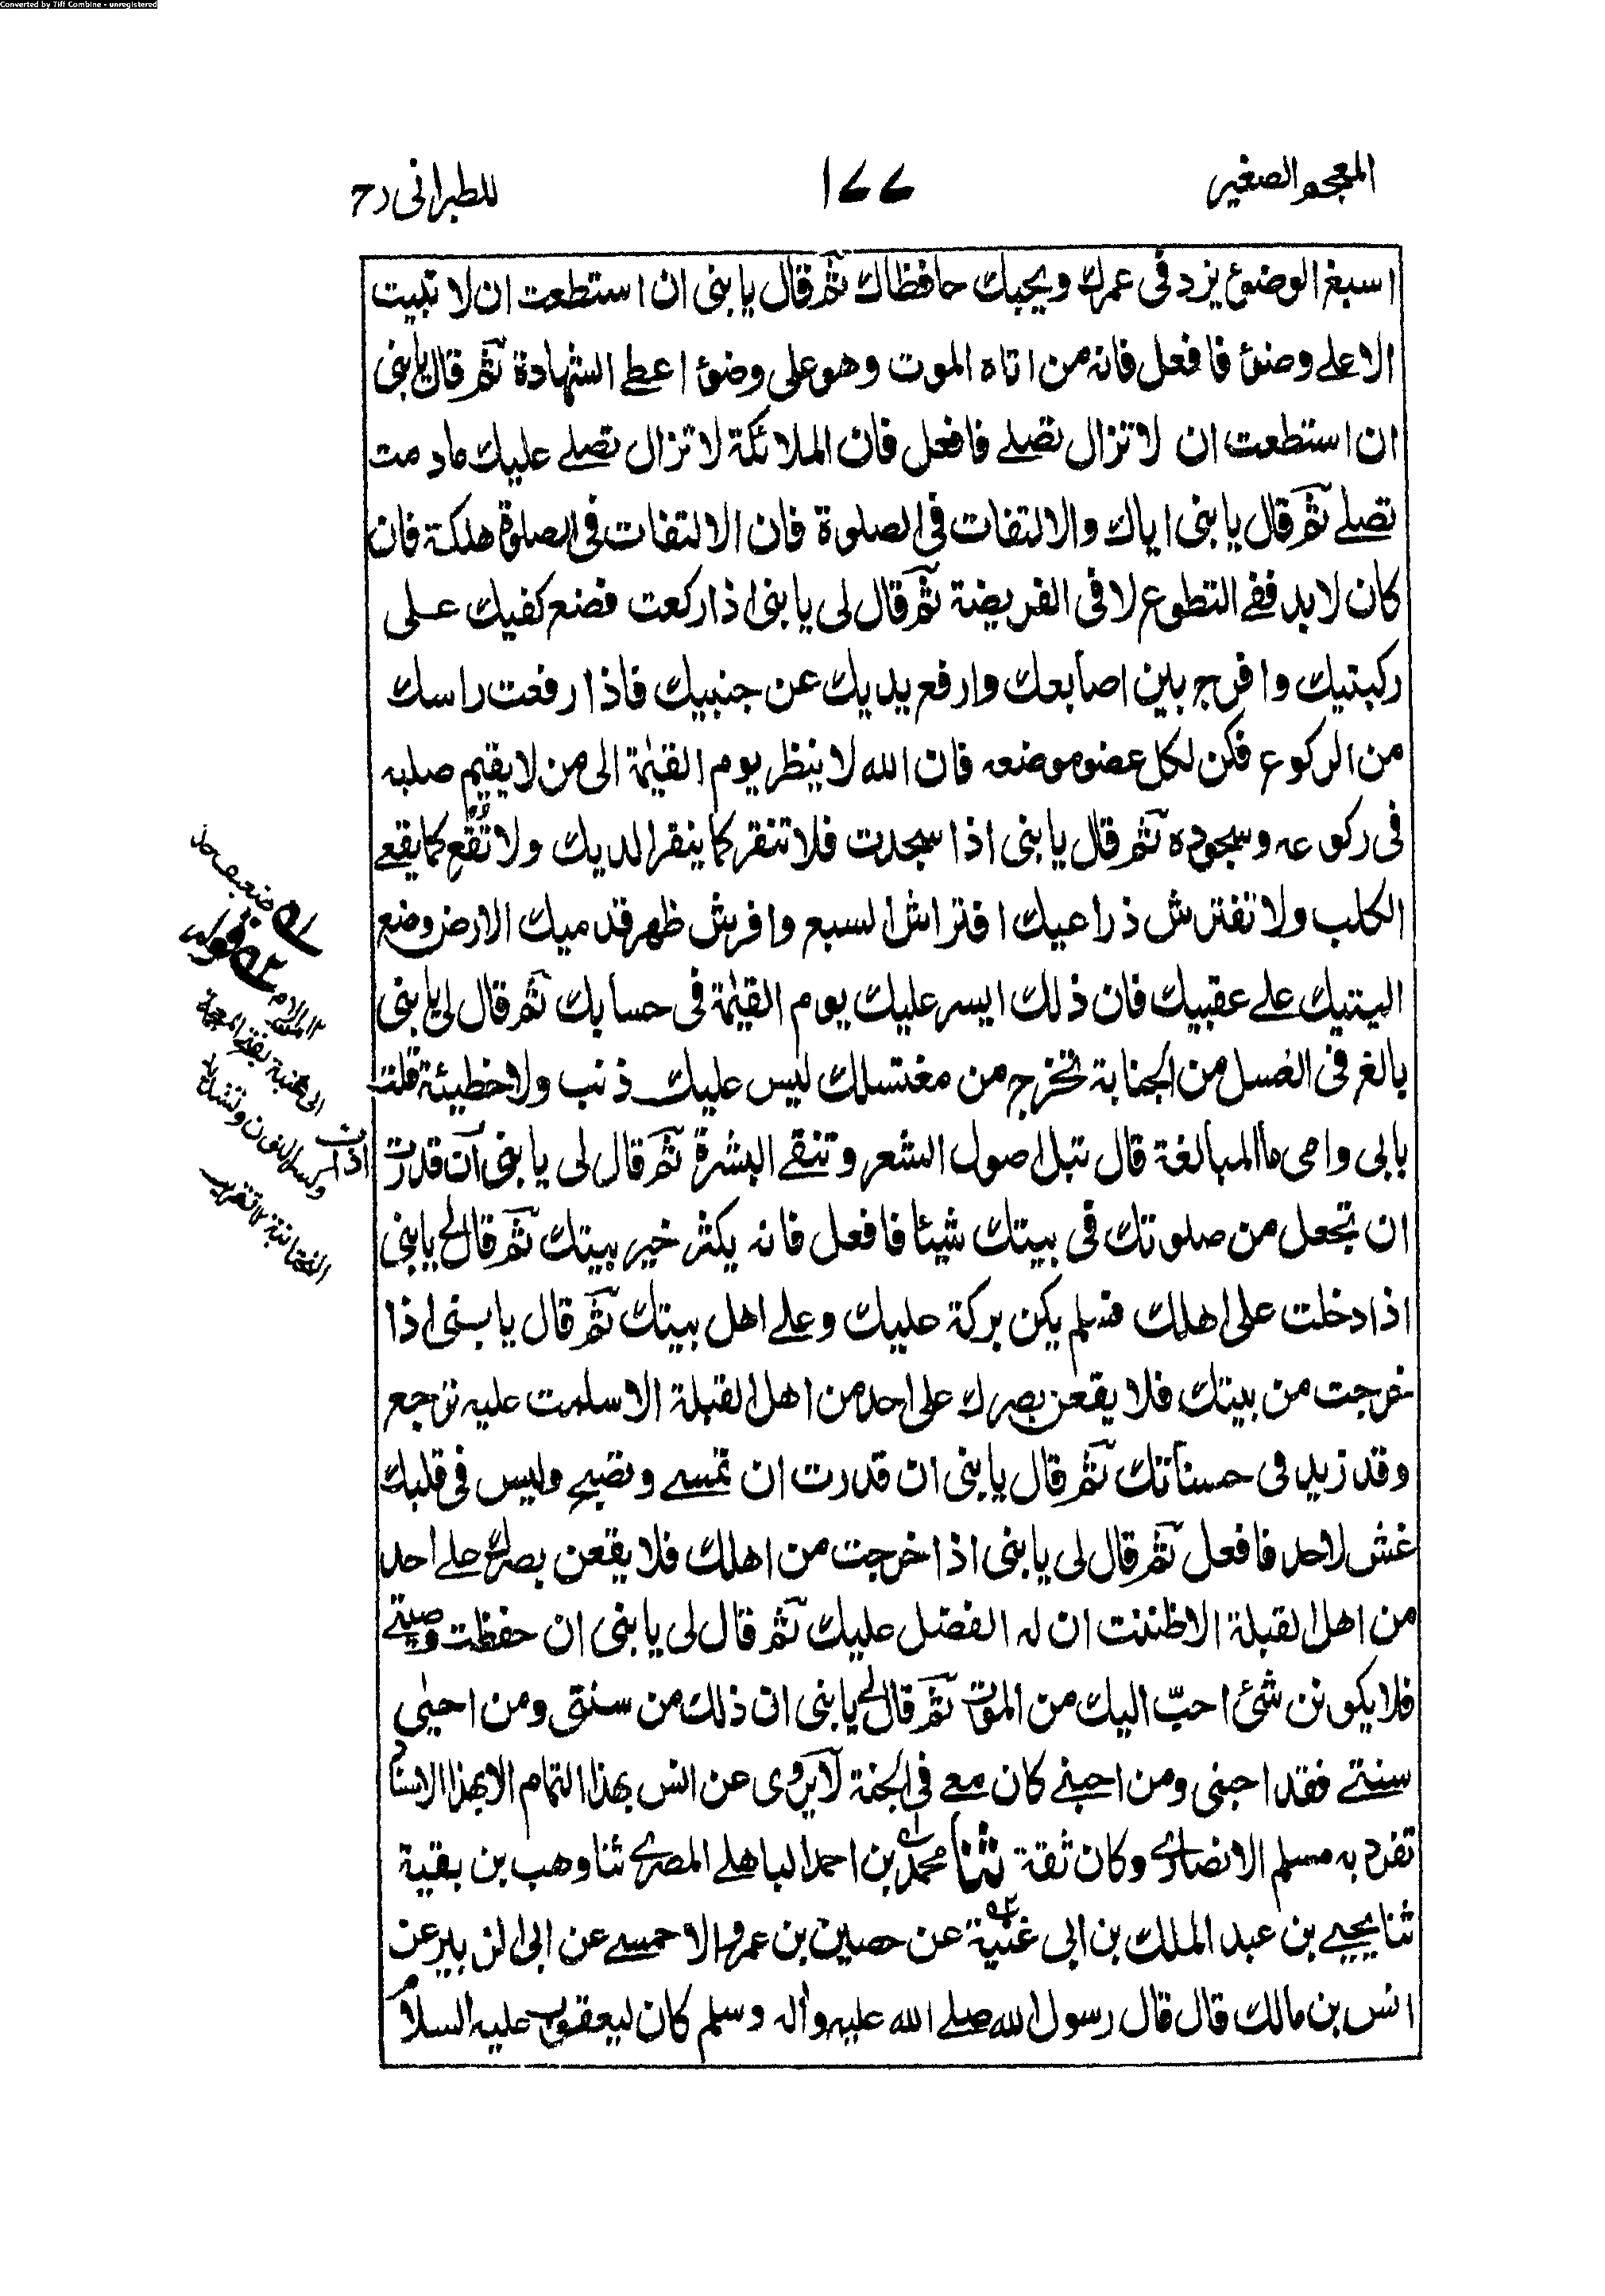 Converted by Tiff Combine - unregistered
المعجم الصغير
١٧٧
للطبرانی رح
اسبغ الوضوئ یزد فی عمرك ویحبك حافظاك ثم قال یا بنی ان استطعت ان لا تبیت
الا علے وضوئ فافعل فانه من اتاه الموت وهو علی وضوئ اعطے الشهادة ثم قال یا بنی
ان استطعت ان لا تزال تصلے فافعل فان الملائکة لا تزال تصلے علیك مادمت
تصلے ثم قال یا بنی ایاك والالتفات فی الصلوة فان الالتفات فی الصلوة هلکة فان
کان لا بد ففے التطوع لا فی الفریضة ثم قال لی یا بنی اذا رکعت فضع کفیك علی
رکبتیك وافرج بین اصابعك وارفع یدیك عن جنبیك فاذا رفعت راسك
من الرکوع فکن لکل عضو موضعه فان الله لا ینظر یوم القیٰمة الی من لا یقیم صلبه
فی رکوعه وسجوده ثم قال یا بنی اذا سجدت فلا تنقر کما ینقر الدیك ولا تقع کما یقعے
الکلب ولا تفترش ذراعیك افتراش السبع وافرش ظهر قدمیك الارض وضع
الیتیك علے عقبیك فان ذلك ایسر علیك یوم القیٰمة فی حسابك ثم قال لی یا بنی
بالغ فی الغسل من الجنابة تخرج من مغتسلك لیس علیك ذنب ولا خطیئة قلت
بابی وامی ما المبالغة قال تبل اصول الشعر وتنقے البشرة ثم قال لی یا بنی ان قدرت
ان تجعل من صلوتك فی بیتك شیئا فافعل فانه یکثر خیر بیتك ثم قال لی یا بنی
اذا دخلت علی اهلك فسلم یکن برکة علیك وعلے اهل بیتك ثم قال یا بنی اذا
خرجت من بیتك فلا یقعن بصرك علی احد من اهل القبلة الا سلمت علیه ترجع
وقد زید فی حسناتك ثم قال یا بنی ان قدرت ان تمسے وتصبح ولیس فی قلبك
غش لاحد فافعل ثم قال لی یا بنی اذا خرجت من اهلك فلا یقعن بصرك علے احد
من اهل القبلة الا ظننت ان له الفضل علیك ثم قال لی یا بنی ان حفظت وصیتے
فلا یکونن شئ احبّ الیك من الموت ثم قال لی یا بنی ان ذلك من سنتی ومن احیٰی
سنتے فقد احبنی ومن احبنے کان معے فی الجنة لا یروی عن انس بهذا التمام الا بهذا الاسناد
تفرد به مسلم الانصاری وکان ثقة ثنا محمد بن احمد الباهلے المصری ثنا وهب بن بقیة
ثنا یحیے بن عبد الملك بن ابی غنیة عن حصین بن عمرو الاحمسے عن ابی الزبیر عن
انس بن مالك قال قال رسول الله صلے الله علیه وآله وسلم کان لیعقوب علیه السلام
ضعیف جدا
قوله
ابی غنیة بفتح المعجمة
وکسر النون وتشدید
التحتانیة ١٢ تقریب